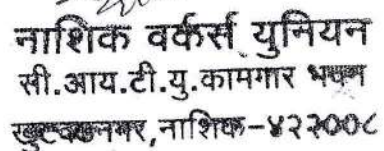 नाशिक वर्कर्स युनियन
सी.आय.टी.यु.कामगार भवन
खुटवडनगर,नाशिक-४२२००८